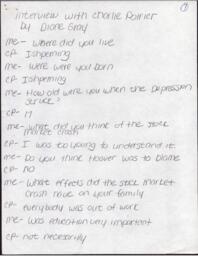 ①
interview with Charlie Poirier
by Diane Gray
me- Where did you live
cp- Ishpeming
me- Were were you born
cp- Ishpeming
me- How old were you when the Depression
struck?
cp- 17
me- What did you think of the stock
market crash
cp- I was too young to understand it.
me- Do you think Hoover was to blame
cp- no
me- What effects did the stock market
crash have on your family
cp- everybody was out of work
me- Was education very important
cp- not necessarily